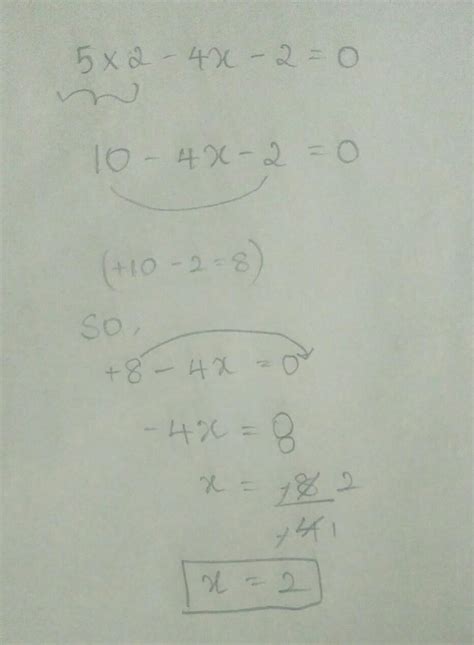 5×2 - 4x - 2 = 0
10 - 4x - 2 = 0
(+10 - 2 = 8)
SO,
+8 - 4x = 0
-4x = 8
x = -8/-4 2 1
x = 2